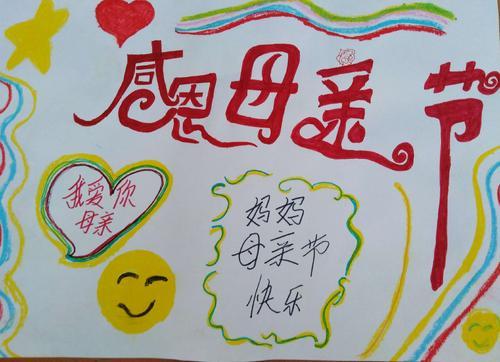 感恩母亲节
我爱你
母亲
妈妈
母亲节
快乐